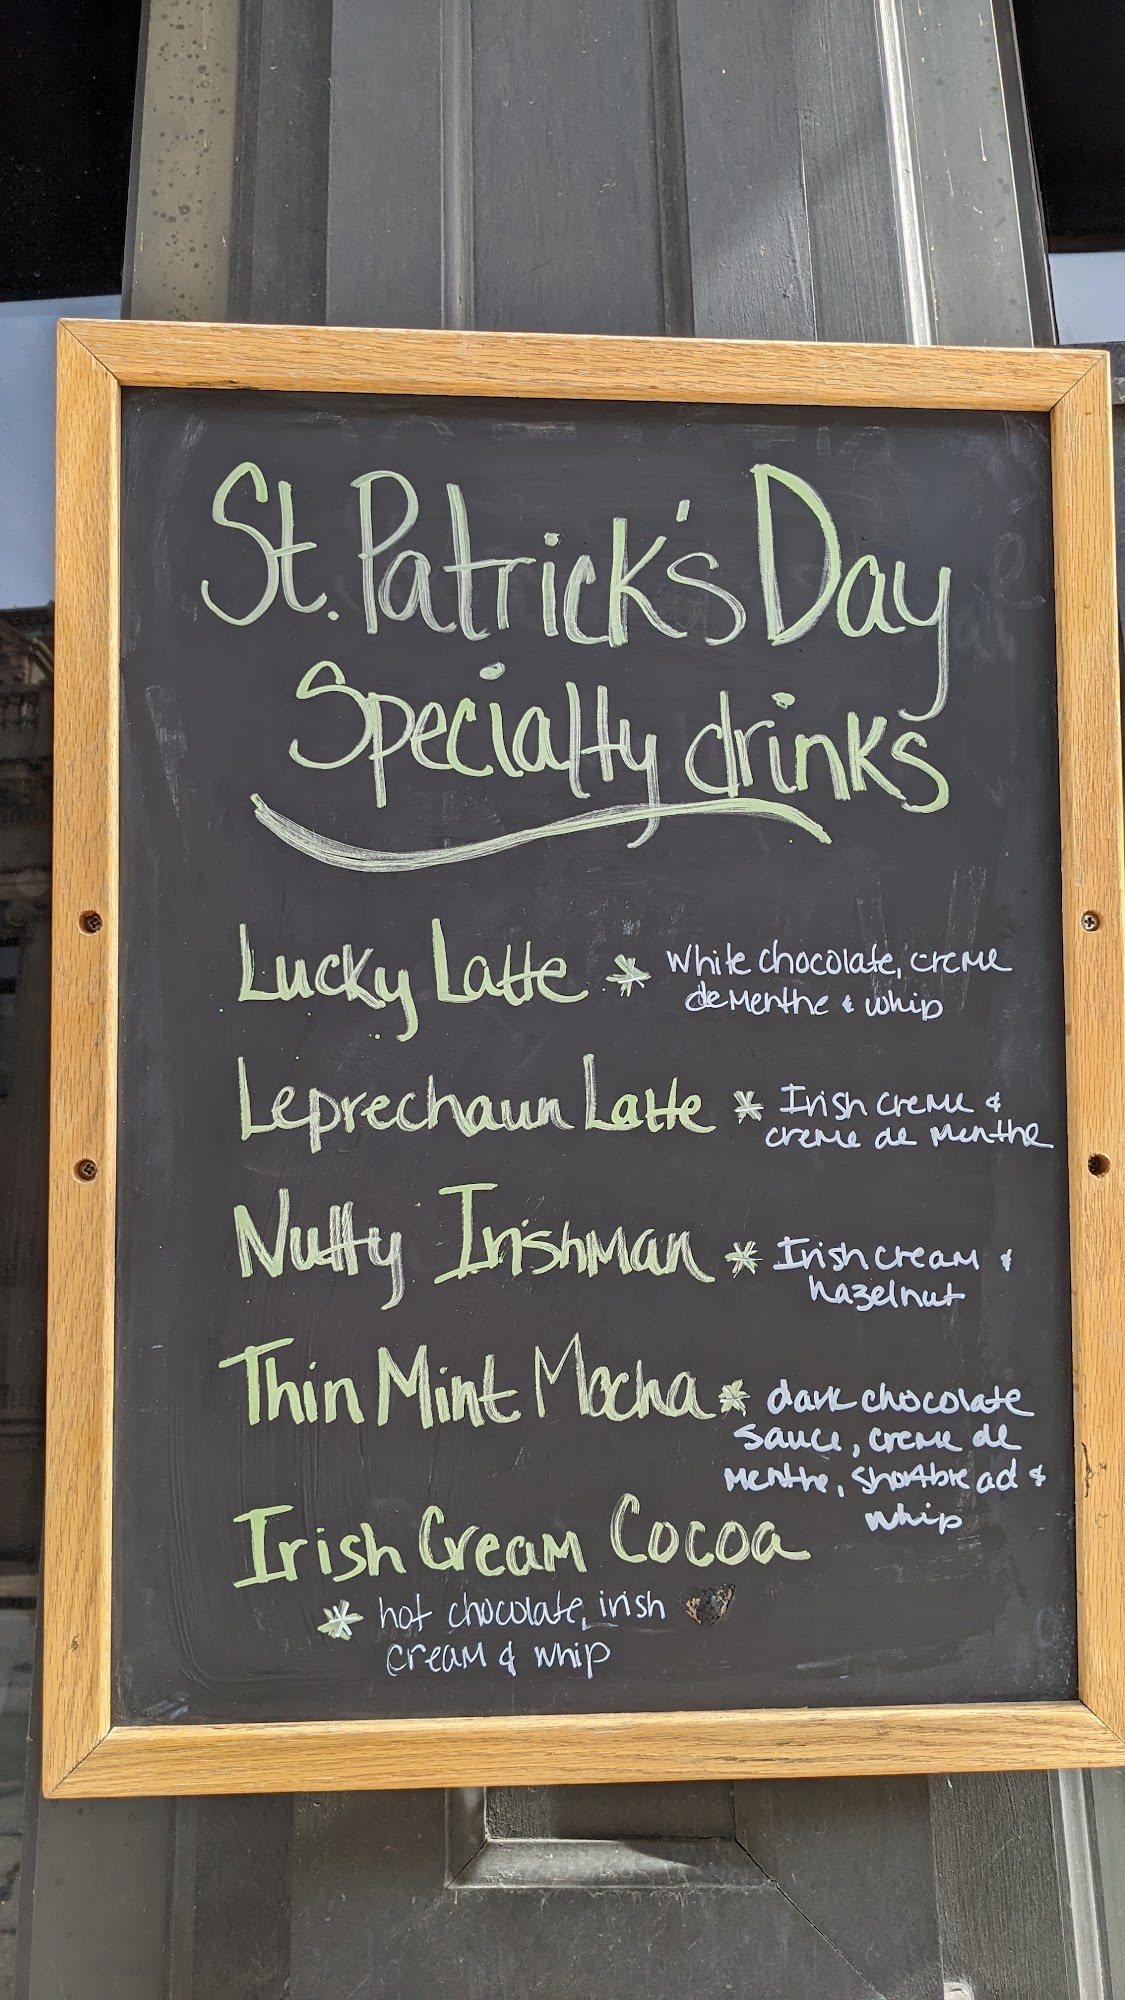 St. Patrick's Day
Specialty drinks
Lucky Latte * White chocolate, creme
de Menthe & whip
Leprechaun Latte * Irish creme &
creme de Menthe
Nutty Irishman * Irish cream &
hazelnut
Thin Mint Mocha * dark chocolate
sauce, creme de
Menthe, shortbread &
whip
Irish Cream Cocoa
* hot chocolate, irish
cream & whip